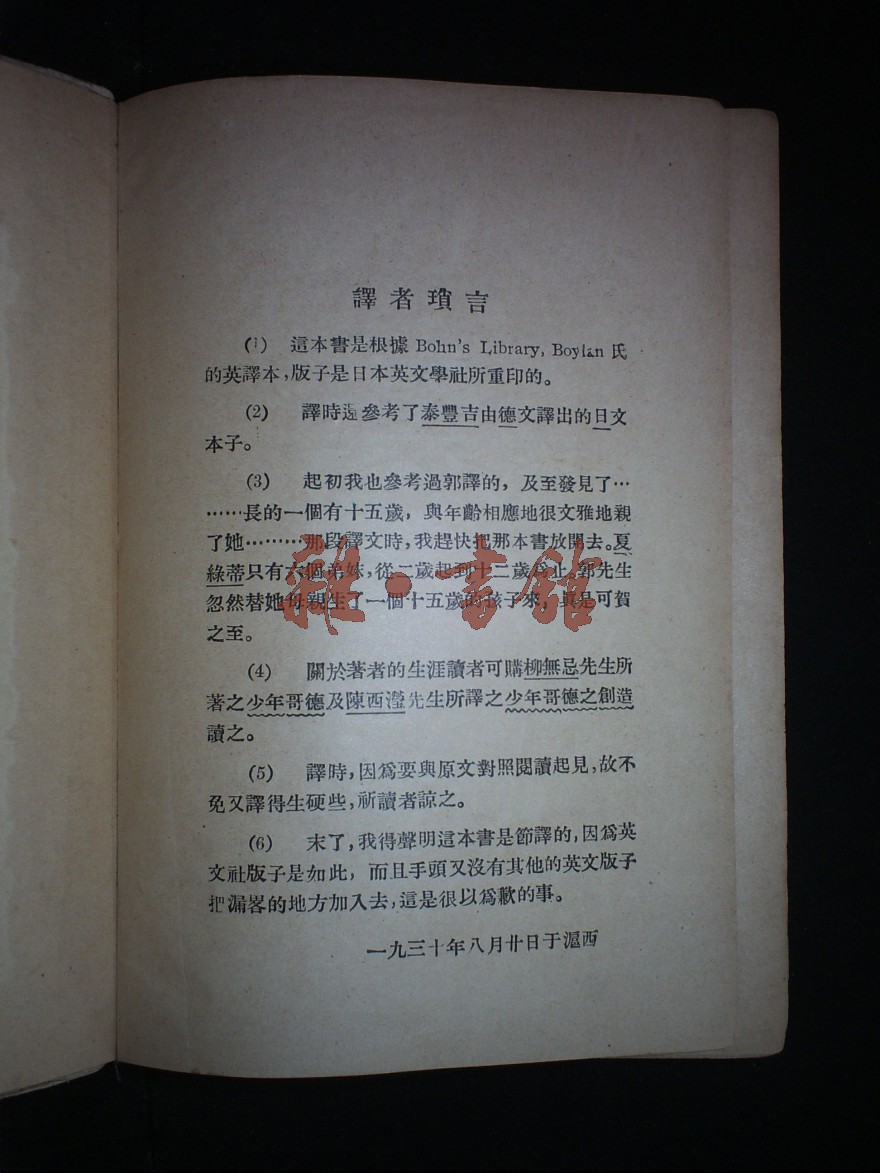 譯者瑣言
(1) 這本書是根據 Bohn's Library, Boylan 氏
的英譯本,版子是日本英文學社所重印的。
(2) 譯時還參考了泰豐吉由德文譯出的日文
本子。
(3) 起初我也參考過郭譯的,及至發見了…
……長的一個有十五歲,與年齡相應地很文雅地親
了她………那段譯文時,我趕快把那本書放開去。夏
綠蒂只有六個弟妹,從二歲起到十二歲為止,郭先生
忽然替她母親生了一個十五歲的孩子來,真是可賀
之至。
(4) 關於著者的生涯讀者可購柳無忌先生所
著之少年哥德及陳西瀅先生所譯之少年哥德之創造
讀之。
(5) 譯時,因爲要與原文對照閱讀起見,故不
免又譯得生硬些,祈讀者諒之。
(6) 末了,我得聲明這本書是節譯的,因爲英
文社版子是如此,而且手頭又沒有其他的英文版子
把漏畧的地方加入去,這是很以爲歉的事。
一九三十年八月廿日于滬西
雜·書館